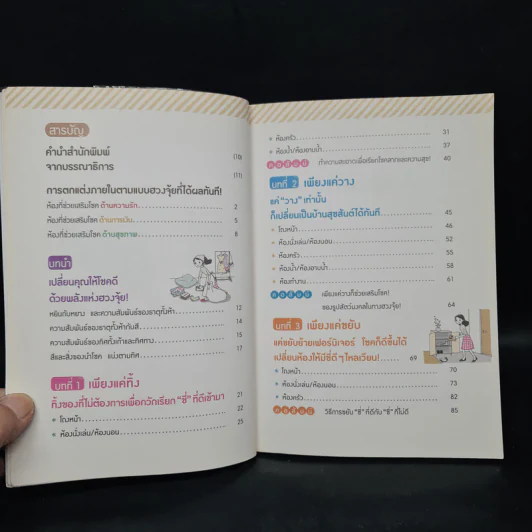 สารบัญ
คำนำสำนักพิมพ์ (10)
จากบรรณาธิการ (11)
การตกแต่งภายในตามแบบฮวงจุ้ยที่ได้ผลทันที!
ห้องที่ช่วยเสริมโชค ด้านความรัก 2
ห้องที่ช่วยเสริมโชค ด้านการเงิน 5
ห้องที่ช่วยเสริมโชค ด้านสุขภาพ 8
บทนำ
เปลี่ยนคุณให้โชคดี
ด้วยพลังแห่งฮวงจุ้ย!
หยินกับหยาง และความสัมพันธ์ของธาตุทั้งห้า 12
ความสัมพันธ์ของธาตุทั้งห้ากับสี 14
ความสัมพันธ์ของทิศทั้งเก้าและทิศทาง 15
สีและสิ่งของนำโชค แบ่งตามทิศ 17
บทที่ 1 เพียงแค่ทิ้ง
ทิ้งของที่ไม่ต้องการเพื่อกวักเรียก "ชี่" ที่ดีเข้ามา 21
โถงหน้า 22
ห้องนั่งเล่น/ห้องนอน 25
ห้องครัว 31
ห้องน้ำ/ห้องอาบน้ำ 37
คอลัมน์ ทำความสะอาดเพื่อเรียกโชคลาภและความสุข! 40
บทที่ 2 เพียงแค่วาง
แค่ "วาง" เท่านั้น
ก็เปลี่ยนเป็นบ้านสุขสันต์ได้ทันที 45
โถงหน้า 46
ห้องนั่งเล่น/ห้องนอน 52
ห้องครัว 55
ห้องน้ำ/ห้องอาบน้ำ 58
ห้องทำงาน 61
คอลัมน์ เพียงแค่วางก็ช่วยเสริมโชค!
ของรูปสัตว์มงคลในทางฮวงจุ้ย! 64
บทที่ 3 เพียงแค่ขยับ
แค่ขยับย้ายเฟอร์นิเจอร์ โชคก็ดีขึ้นได้
เปลี่ยนห้องให้มีชี่ดีๆ ไหลเวียน! 69
โถงหน้า 70
ห้องนั่งเล่น/ห้องนอน 73
ห้องครัว 82
คอลัมน์ วิธีการขยับ "ชี่" ที่ดีกับ "ชี่" ที่ไม่ดี 85